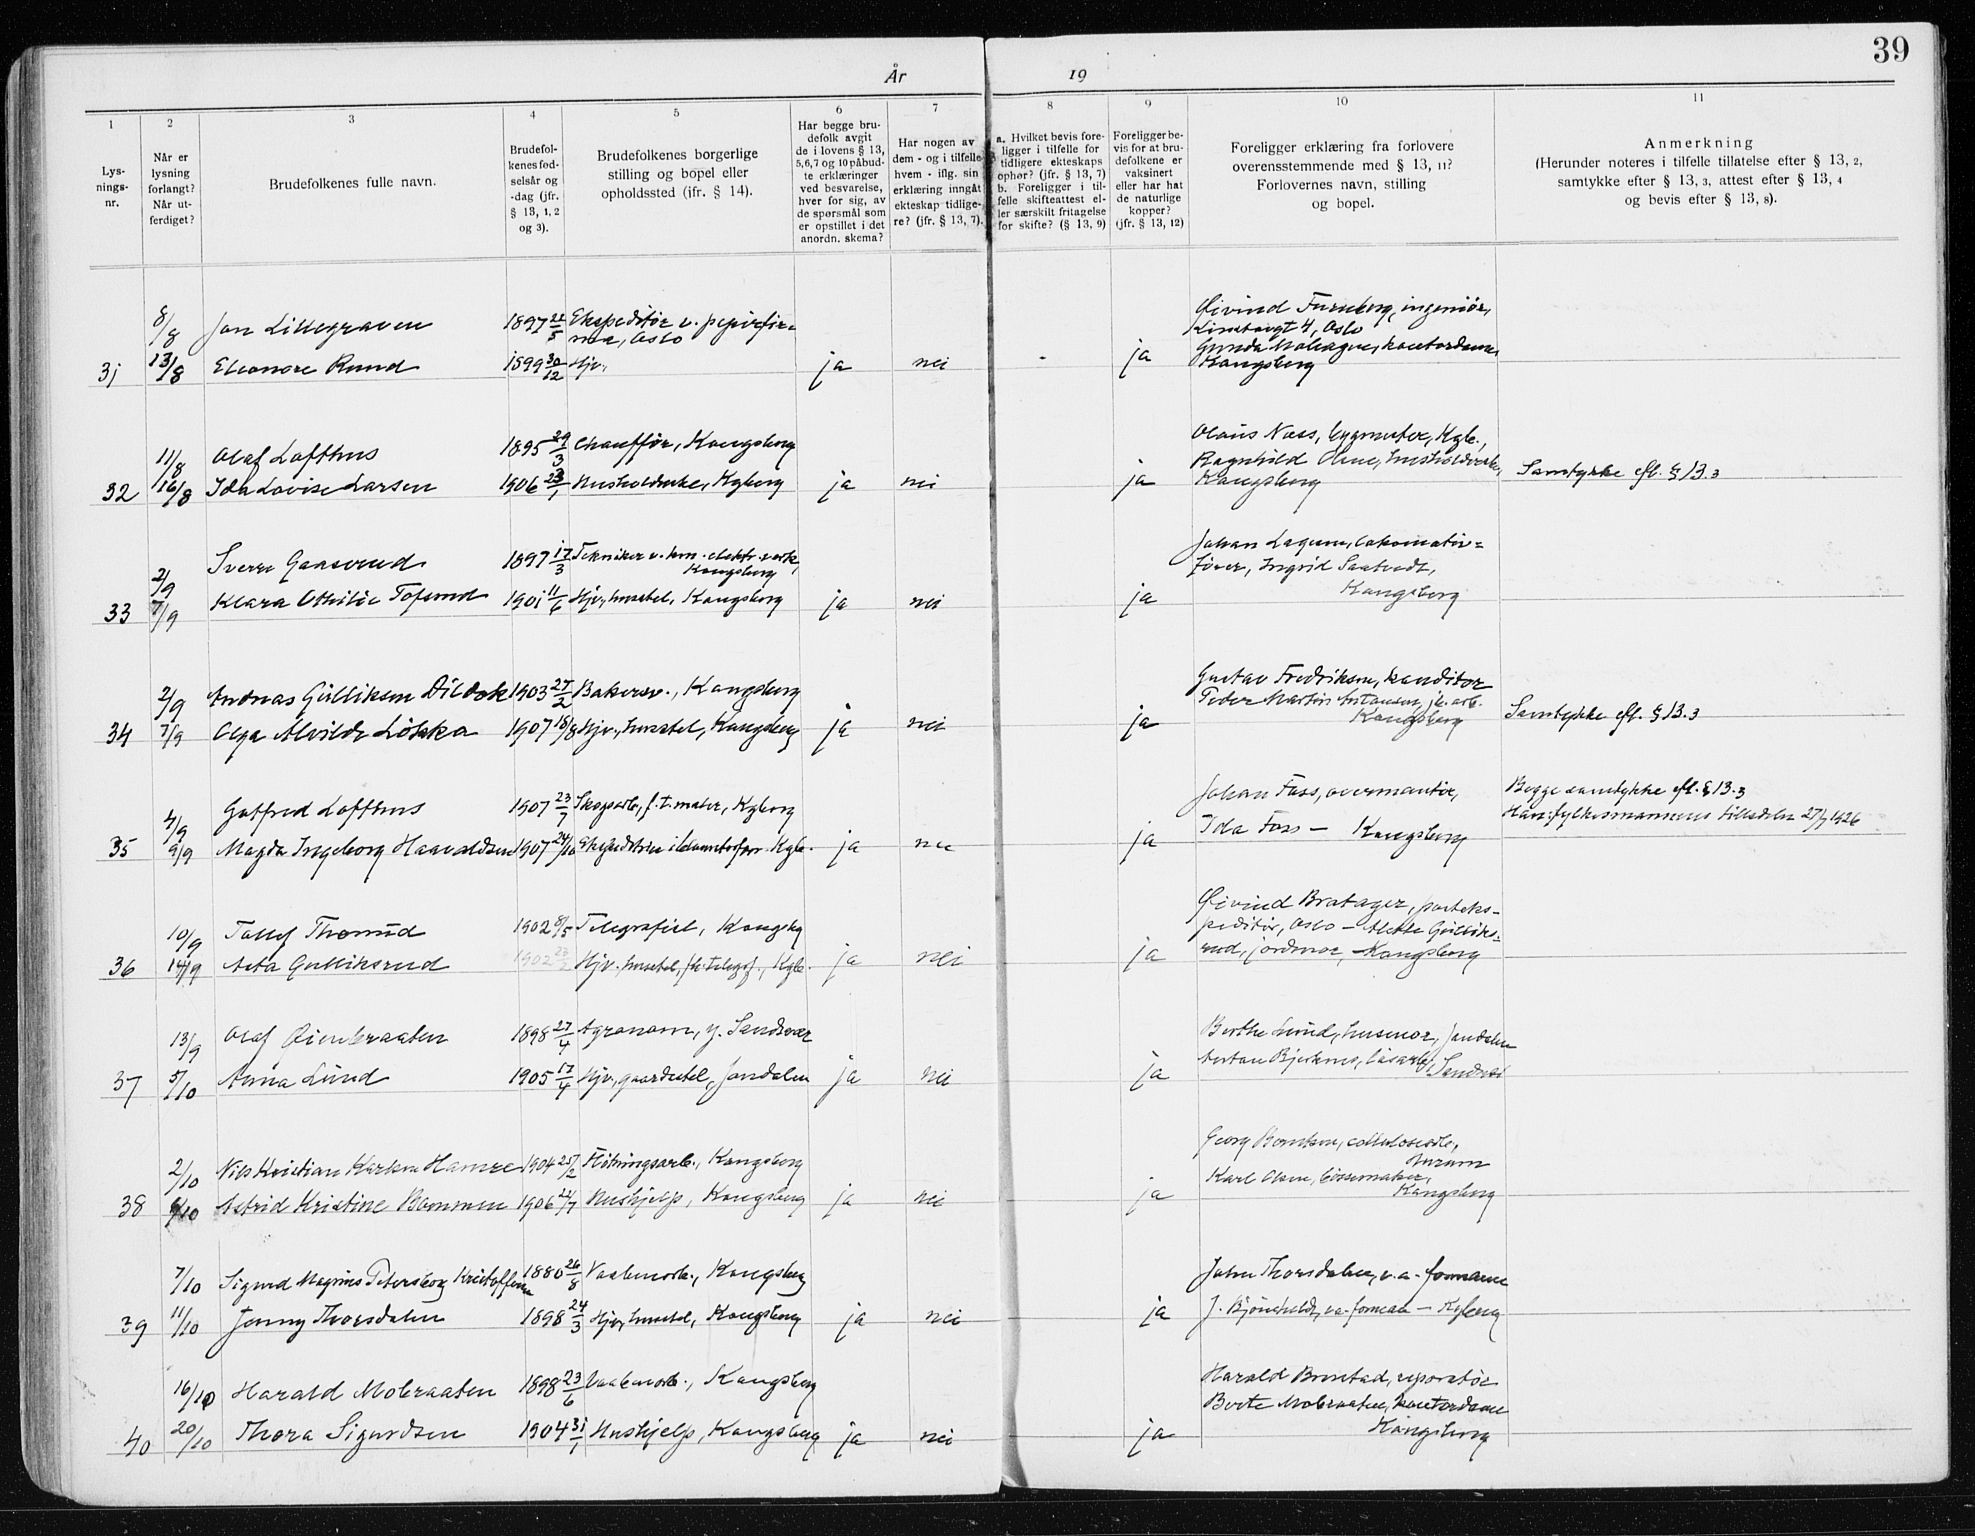 39
År 19
1 2 3 4 5 6 7 8 9 10 11
Lys-
nings-
nr.
Når er
lysning
forlangt?
Når ut-
ferdiget?
Brudefolkenes fulle navn.
Brudefol-
kenes fød-
selsår og
-dag (jfr.
§ 13, 1, 2
og 3).
Brudefolkenes borgerlige
stilling og bopel eller
opholdssted (jfr. § 14).
Har begge bru-
defolk avgit
de i lovens § 13,
5,6,7 og 10 påbud-
te erklæringer
ved besvarelse,
hver for sig, av
de spørsmål som
er opstillet i det
anordn. skema?
Har nogen av
dem - og i tilfelle
hvem - iflg. sin
erklæring inngått
ekteskap tidlige-
re? (jfr. § 13, 7).
a. Hvilket bevis fore-
ligger i tilfelle for
tidligere ekteskaps
ophør? (jfr. § 13, 7)
b. Foreligger i til-
felle skifteattest el-
ler særskilt fritagelse
for skifte? (§ 13, 9)
Foreligger be-
vis for at bru-
defolkene er
vaksinert
eller har hat
de naturlige
kopper?
(jfr. § 13, 12)
Foreligger erklæring fra forlovere
overensstemmende med § 13, 11?
Forlovernes navn, stilling
og bopel.
Anmerkning
(Herunder noteres i tilfelle tillatelse efter § 13, 2,
samtykke efter § 13, 3, attest efter § 13, 4
og bevis efter § 13, 8).
8/8 Jon Lillegraven 1897 5 Ekspeditør v. papirfir=
ma, Oslo
Øivind Furuberg, ingeniør,
4, Oslo
Gunda kontordame,
31 13/8 Eleonore Rund 1899 30/12 Hjv. ja nei - ja Kongsberg
11/8 Olaf Lofthus 1895 29/3 Chauffør, Kongsberg
Olaus Næss, bygmester, Kgb.,
Ragnhild
32 16/8 Ida Lovise Larsen 1906 23/1 Kgberg ja nei ja Kongsberg Samtykke eft. § 13.3
2/9 Sverre Gaaserud 1897 17/3 Tekniker v. kom. elektr. verk,
Kongsberg
Johan lokomotiv=
fører, Ingrid Saatvedt,
33 7/9 Klara Othilie 1901 11/6 Hjv., husstel, Kongsberg ja nei ja Kongsberg
2/9 Andreas Gulliksen 1903 27/2 Bakersv., Kongsberg
Gustav Fredriksen, konditor
Peder Martin
34 7/9 Olga Alvilde Løkka 1907 18/8 Hjv., husstel, Kongsberg ja nei ja Kongsberg Samtykke eft. § 13.3
4/9 Gotfred Lofthus 1907 23/7 Skogsarb., f.t. Kgberg
Johan Foss, overmontør,
Begge samtykke eft. § 13.3
Han: fylkesmannens tilladelse 1926
35 9/9 Magda Ingeborg Haavaldsen 1907 24/10 Kgb. ja nei ja Ida Foss — Kongsberg
10/9 Tollef Thorrud 1902 8/5 Telegrafist, Kongsbg
Øivind Bratager, posteks-
peditør, Oslo — Gulliks=
36 14/9 Asta Gulliksrud 1902 Hjv. husstel, Kgb. ja nei ja rud, jordmor, Kongsberg
13/9 Olaf Øienbraaten 1898 27/4 Agronom, y. Sandsvær
Berthe Lund, husmor, Jondalen
37 5/10 Anna Lund 1905 17/4 Hjv., gaardstel, Jondalen ja nei ja
2/10 Nils Kristian Hamre 1904 25/2 Fløtningsarb., Kongsberg
Georg cellulosearb.,
Karl Olsen, bøssemaker,
38 /10 Astrid Kristine 1906 Hushjelp, Kongsberg ja nei ja Kongsberg
7/10 Sigurd Magnus Petersborg Kristoffersen 1880 26/8 Vaabenarb., Kongsberg
John Thorsdalen, v.a. formann
39 11/10 Jenny Thorsdalen 1898 24/3 Hjv., husstel, Kongsberg ja nei ja — Kgberg
16/10 Harald Mobraaten 1898 23/6 Vaabenarb., Kongsberg
Harald reparatør
Berte Mobraaten, kontordame
40 20/10 Thora Sigurdsen 1904 31/1 Hushjelp, Kongsberg ja nei ja Kongsberg